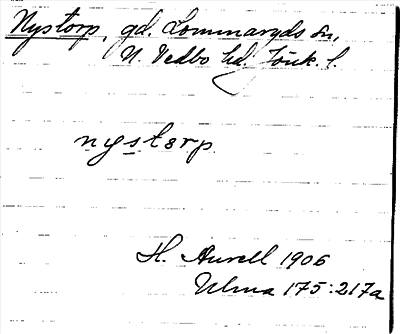 Nystorp, gd. Lommaryds sn,
N. Vedbo hd. Jönk. l.
nystorp.
H. Aurell 1906
Ulma 175:217a